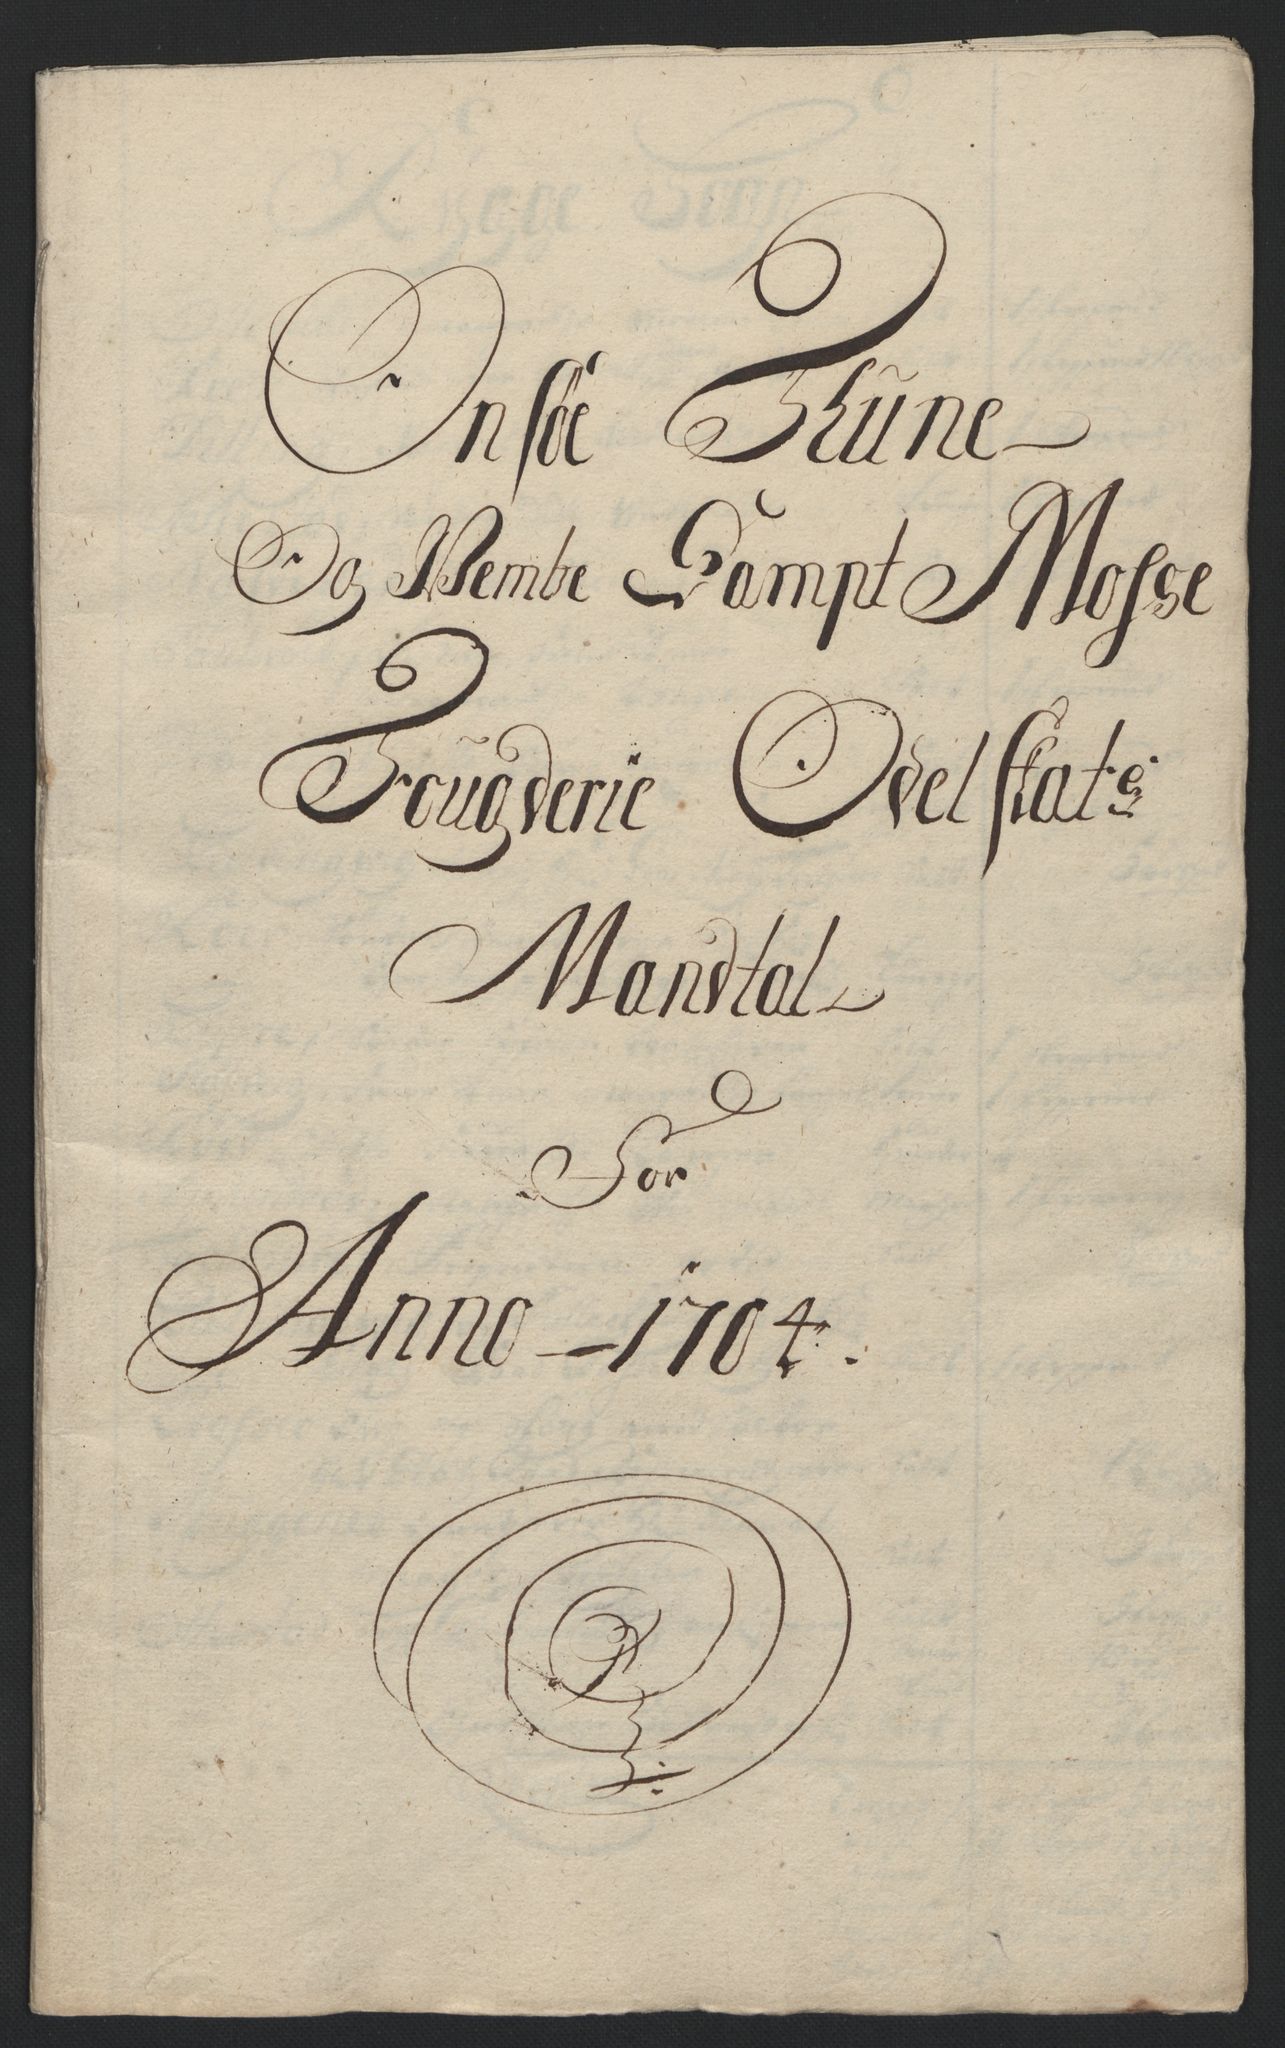 Onsøe Thüne
Og Wembe Sampt Mosse
Fougderie Odelskats
Mandtal
For
Anno 1704.